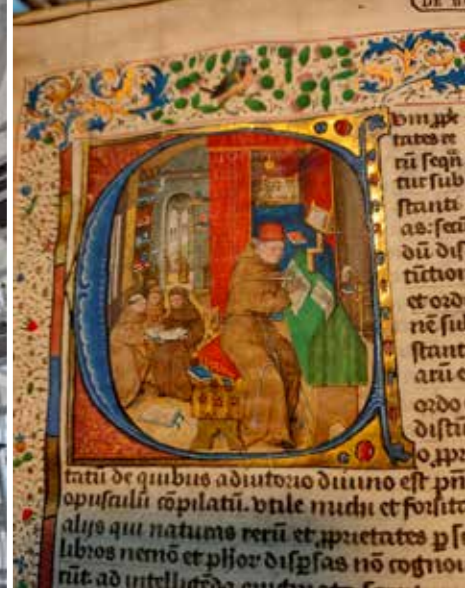 DE
C
vm ꝓpꝛie
tates re
rū ſeqn̄
tur ſub
ſtanti
as: ſecū
dū diſ
et ordi
nē ſub
ſtanti
arū
ordo
diſtin
tatū de quibus adiutorio diuino est pn̄
opuſculū cōpilatū. vtile michi et forſita
alijs qui naturas rerū et ꝓprietates ꝑ
libros nemō et phīor diſꝑſas nō cognou
rūt ad intelligēda